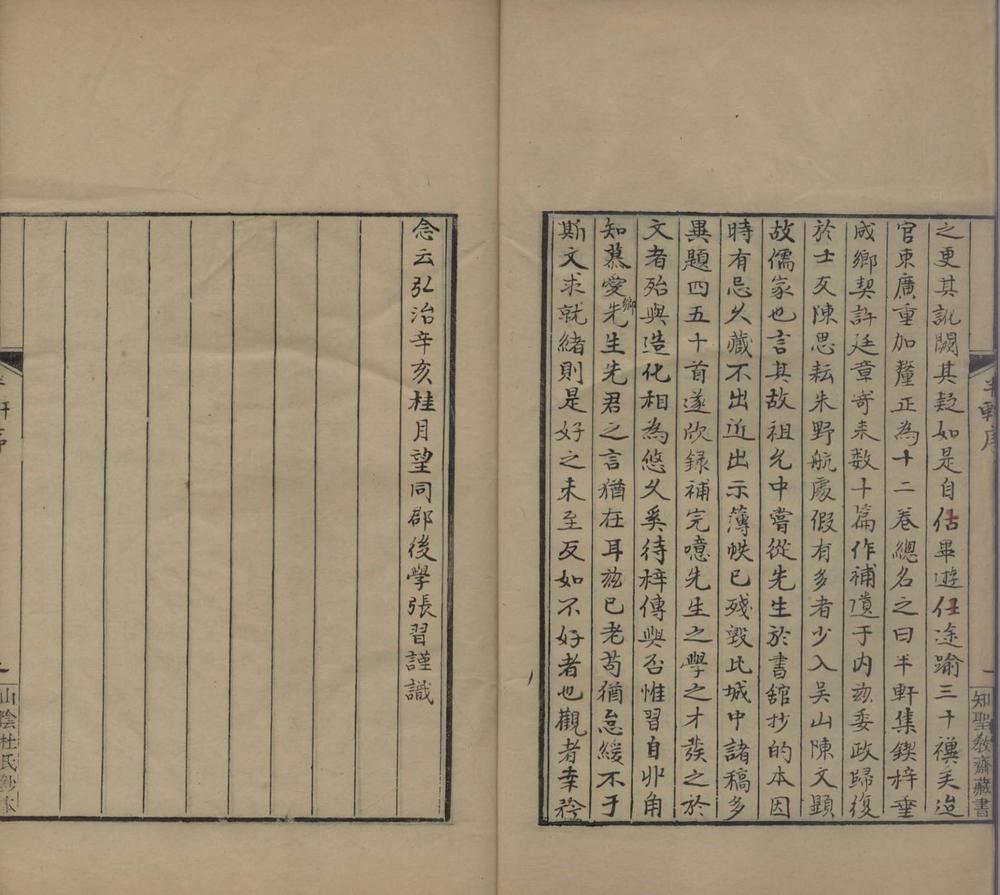 半軒序
一
知聖教齋藏書
之更其訛闕其疑如是自佔畢遊仕途踰三十禩矣迨
官東廣重加釐正為十二卷總名之曰半軒集鍥梓垂
成鄉契許廷章寄来数十篇作補遺于内玆委政歸復
於士友陳思耘朱野航處假有多者少入吴山陳文顕
故儒家也言其故祖允中嘗從先生於書舘抄的本因
時有忌久藏不出近出示薄帙已残毀比城中諸稿多
異題四五十首遂欣録補完噫先生之學之才蕟之於
文者殆與造化相為悠久奚待梓傳與否惟習自丱角
知慕愛鄉先生先君之言猶在耳玆已老茍猶怠緩不于
斯文求就緒則是好之未至反如不好者也觀者幸衿
念云弘治辛亥桂月望同郡後學張習謹識
半軒序
山陰杜氏鈔本